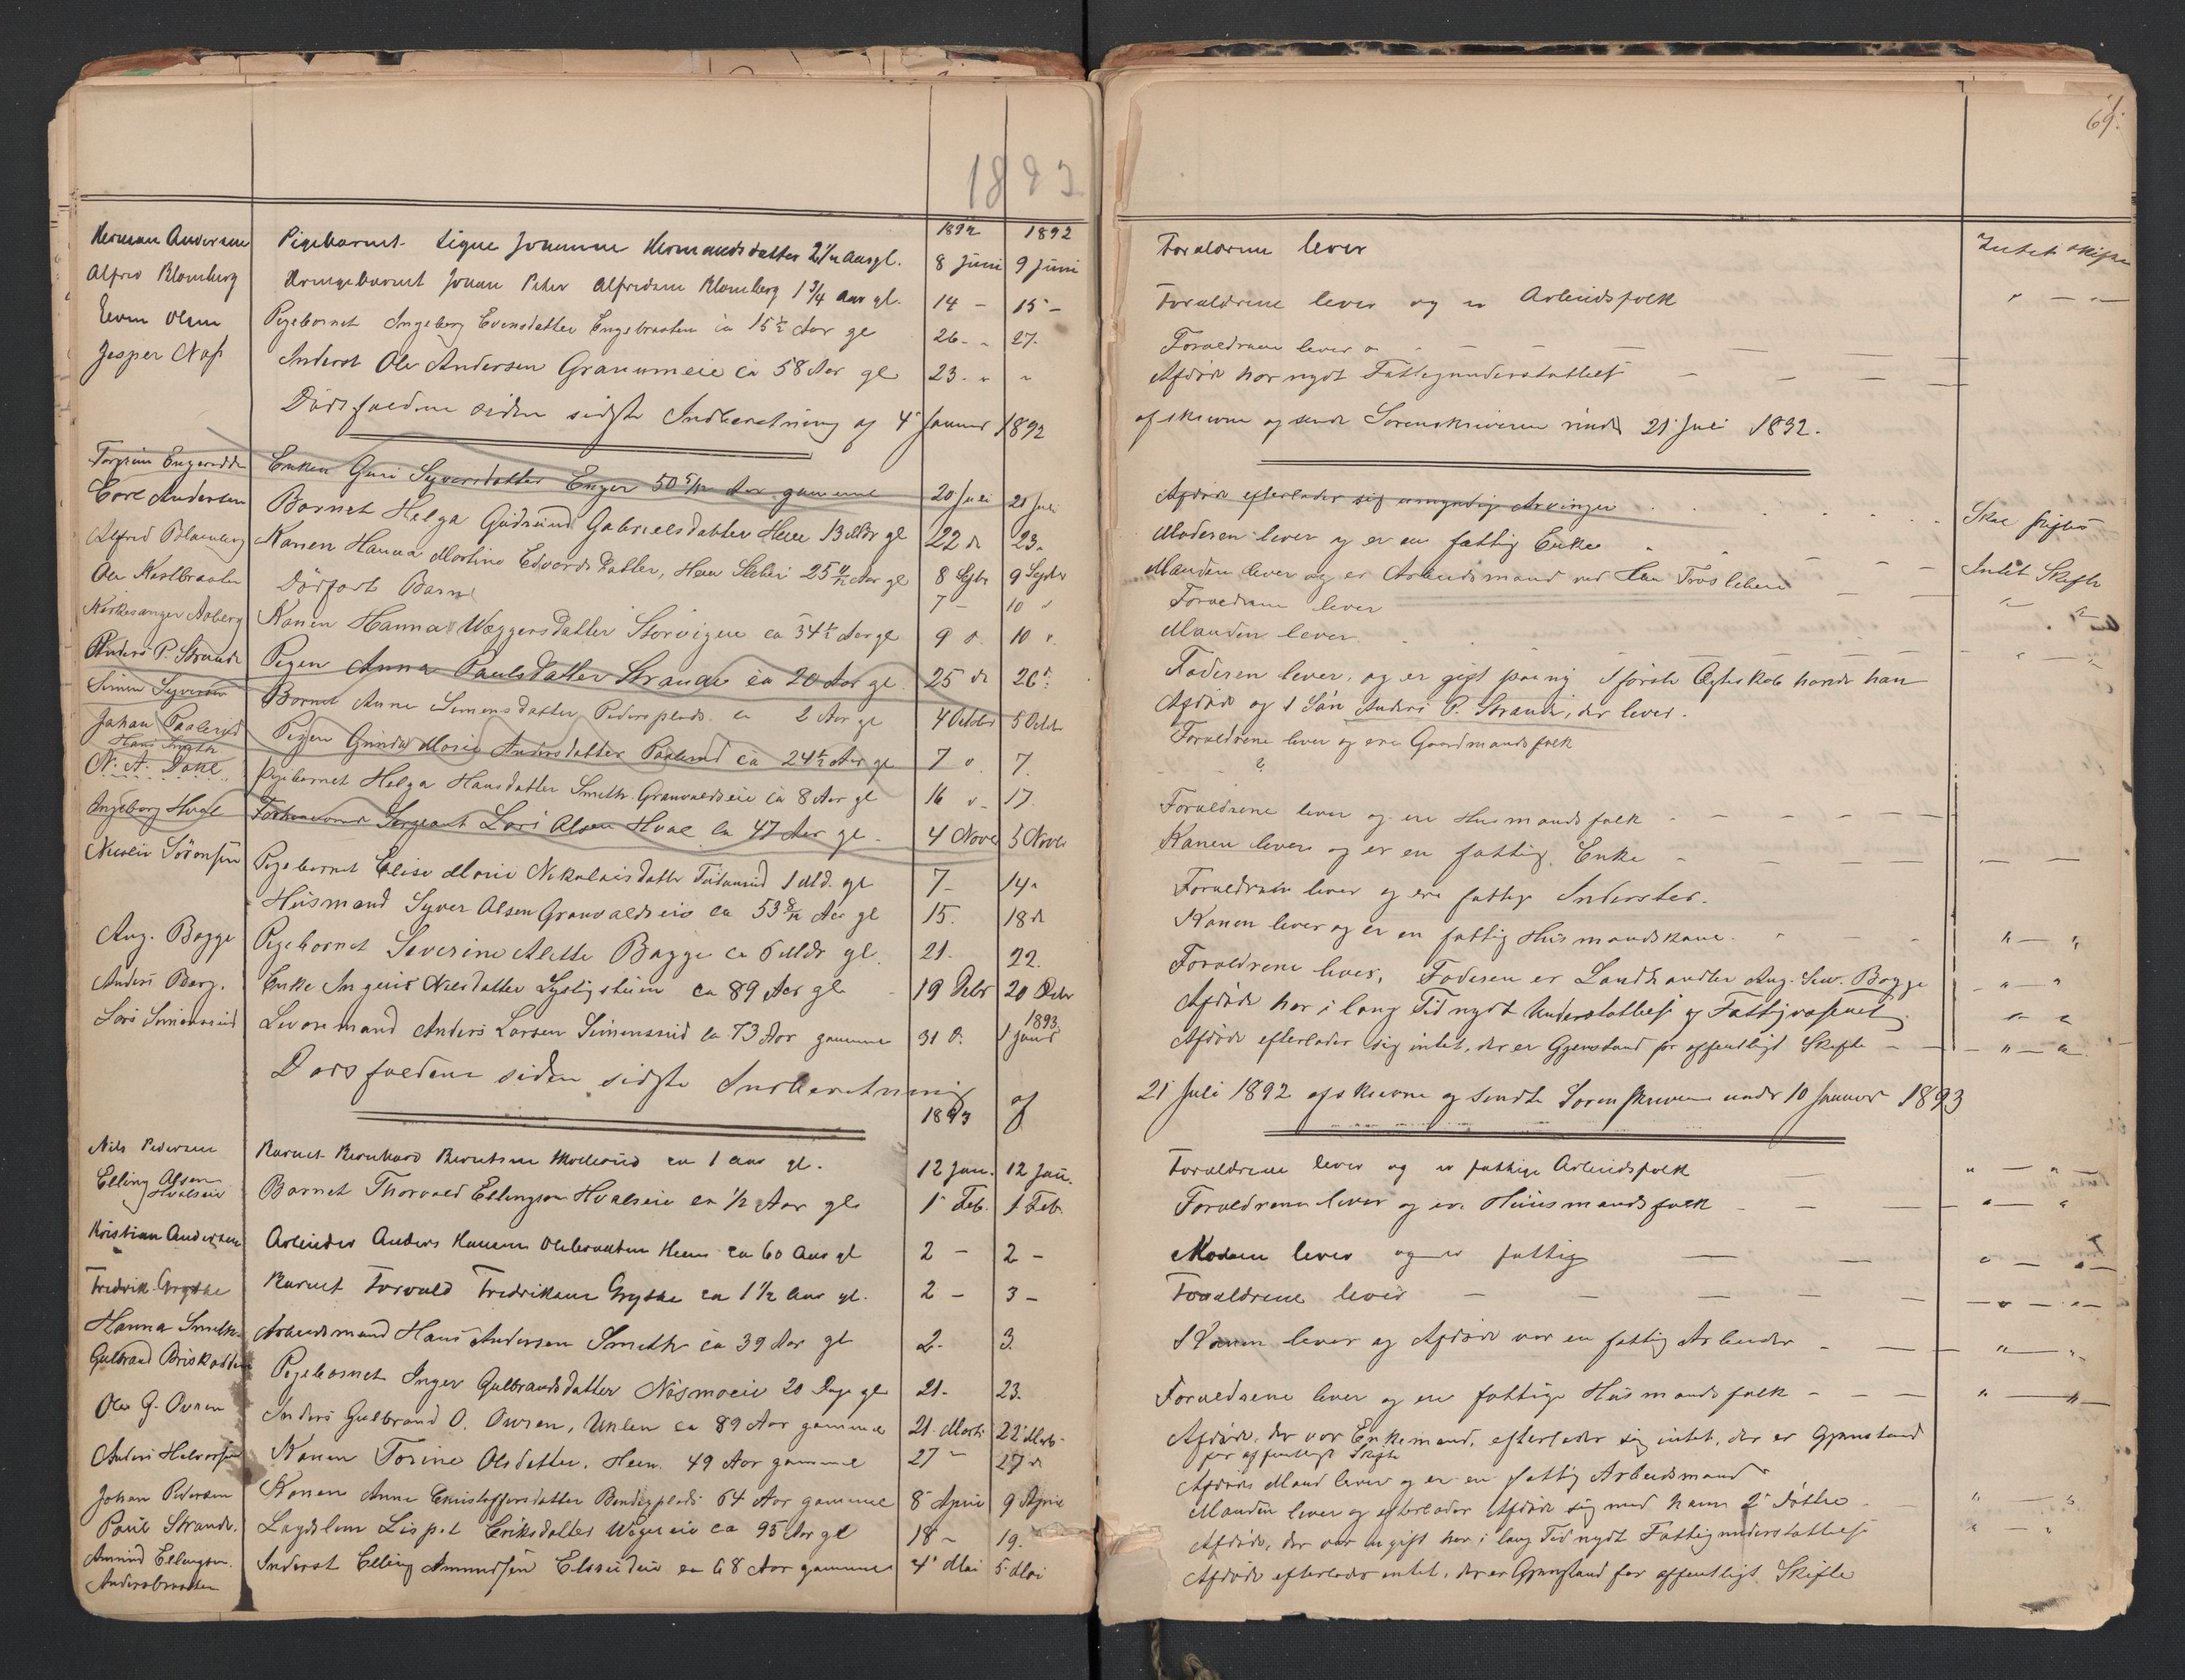 69.
1893
1892 1892
Herman Andersen Pigebarnet Signe Johanne Hermandsdatter 2 1/2 Aar gl. 8 Juni 9 Juni Forældrene lever Intet Skifte
Alfred Blomberg Drengebarnet Johan Peter Alfredsen Blomberg 1 3/4 Aar gl. 14 — 15 — Forældrene lever og er Arbeidsfolk " — " —
Even Olsen Pigebarnet Ingeborg Evensdatter Engebraaten ca 15 1/2 Aar gl 26 - " 27. Forældrene lever " - — — — —
Jesper Næs Inderst Ole Andersen Granumeie ca 58 Aar gl 23 - " " Afdøde har nydt Fattigunderstøttelse — — — —
Dødsfaldene siden sidste Indberetning af 4 Januar 1892 afskrevne og sendt Sorenskriveren under 21 Juli 1892.
Enken Guri Syversdatter Enger 50 5/12 Aar gammel 20 Juli 21 Juli Afdøde efterlader sig umyndige Arvinger Skal skiftes
Carl Andersen Barnet Helga Gudrund Gabrielsdatter Heen 13 Mdr gl 22 d. 23 " Moderen lever og er en fattig Enke
Alfred Blomberg Konen Hanna Martine Edvards Datter, Heen Sliberi 25 11/12 Aar gl 8 Septr 9 Septbr Manden lever og er Arbeidsmand ved Hen Træsliberi Intet Skifte
Ole Kastbraaten Dødfødt Barn 7 — 10 " Forældrene lever " "
Kirkesanger Aaberg Konen Hanna Wæggersdatter Storvigen ca 34 1/2 Aar gl 9 " 10 " Manden lever
Anders P. Strande Pigen Anna Paulsdatter Strande ca 20 Aar gl 25 d. 26 d. Faderen lever, og er gift paa ny. I første Ægteskab havde han
Afdøde og 1 Søn Anders P. Strande, der lever.
Simen Syversen Barnet Anne Simensdatter Pedersplads ca 2 Aar gl 4 October 5 Octbr Forældrene lever og ere Gaardmandsfolk
Johan Paalerud Pigen Gunda Marie Andersdatter Paalerud ca 24 1/2 Aar gl 7 " 7. ?
Hans Smeth
N. A. Dahl Pigebarnet Helga Hansdatter Smeth Granvaldseie ca 8 Aar gl 16 " - 17. Forældrene lever og ere Husmandsfolk - - - - - —
Ingeborg Hval Forhenværende Sergeant Lars Olsen Hval ca 47 Aar gl. 4 Novbr 5 Novbr Konen lever og er en fattig Enke - — — — — —
Nicolai Sørensen Pigebarnet Elise Marie Nikolaisdatter 1 Md. gl 7 — 14 " Forældrene lever og ere fattige Inderster.
Husmand Syver Olsen Granvaldseie ca 53 8/12 Aar gl 15. 18 d. Konen lever og er en fattig Husmandskone. " — "
Aug. Bagge Pigebarnet Severine Alette Bagge ca 6 Mdr gl. 21. 22. Forældrene lever, Faderen er Landhandler Aug. Sev. Bagge - " — "
Anders Berg. Enke Inger Nilsdatter Lystigstuen ca 89 Aar gl 19 Debr 20 Debr Afdøde har i lang Tid nydt Understøttelse af Fattigvæsenet " — "
Lars Simensrud Levemand Anders Larsen Simensrud ca 73 Aar gammel 31 d. 1893 1 Janr Afdøde efterlader sig intet, der er Gjenstand for offentligt Skifte — — " — "
Dødsfaldene siden sidste Indberetning af 21 Juli 1892 afskrevne og sendte Sorenskriveren under 10 Januar 1893
1893
Nils Pedersen Barnet Bernhard Berntsen Mollerud ca 1 Aar gl. 12 Jan. 12 Jan. Forældrene lever og er fattige Arbeidsfolk — " — " —
Elling Olsen Hvalseie Barnet Thorvald Ellingsen Hvalseie ca 1/2 Aar gl 1 Feb. 1 Feb. Forældrene lever og ere Huusmandsfolk - — — — " — "
Kristian Andersen Arbeider Anders Hansen Olebraaten Heen ca 60 Aar gl 2 — 2 — Moderen lever og er fattig — — " — " —
Fredrik Grythe Barnet Torvald Fredriksen Grythe ca 1 1/2 Aar gl. 2 — 3 — Forældrene lever — — — — — — " — " —
Hanna Smeth Arbeidsmand Hans Andersen Smeth ca 39 Aar gl 2 - 3. Konen lever og Afdøde var en fattig Arbeider - — — " — "
Gulbrand Briskodden Pigebarnet Inger Gulbrandsdatter Næsmoeie 20 Dage gl 21 - 23. Forældrene lever og ere fattige Husmandsfolk - — — " — " —
Ole G. Ovren Inderst Gulbrand O. Owren, Unkem ca 89 Aar gammel 21 Marts 22 Marts Afdøde, der var Enkemand, efterlader sig intet, der er Gjenstand
for offentligt Skifte
Anders Halvorsen Konen Torine Olsdatter, Heen. 49 Aar gammel 27 — 27 d. Afdødes Mand lever og er en fattig Arbeidsmand
Johan Pedersen Konen Anne Christoffersdatter Bendigplads 64 Aar gammel 8 April 9 April Manden lever og efterlader Afdøde sig med ham 2 Døttre - " — "
Paul Strande. Lægdslem Lispet Eriksdatter ca 95 Aar gl 18 — 19. Afdøde, der var ugift har i lang Tid nydt Fattigunderstøttelse " — "
Amund Ellingsen Andersbraaten Inderst Elling Amundsen Elsrudeie ca 68 Aar gammel 4 Mai 5 Mai Afdøde efterlader intet, der er Gjenstand for offentligt Skifte